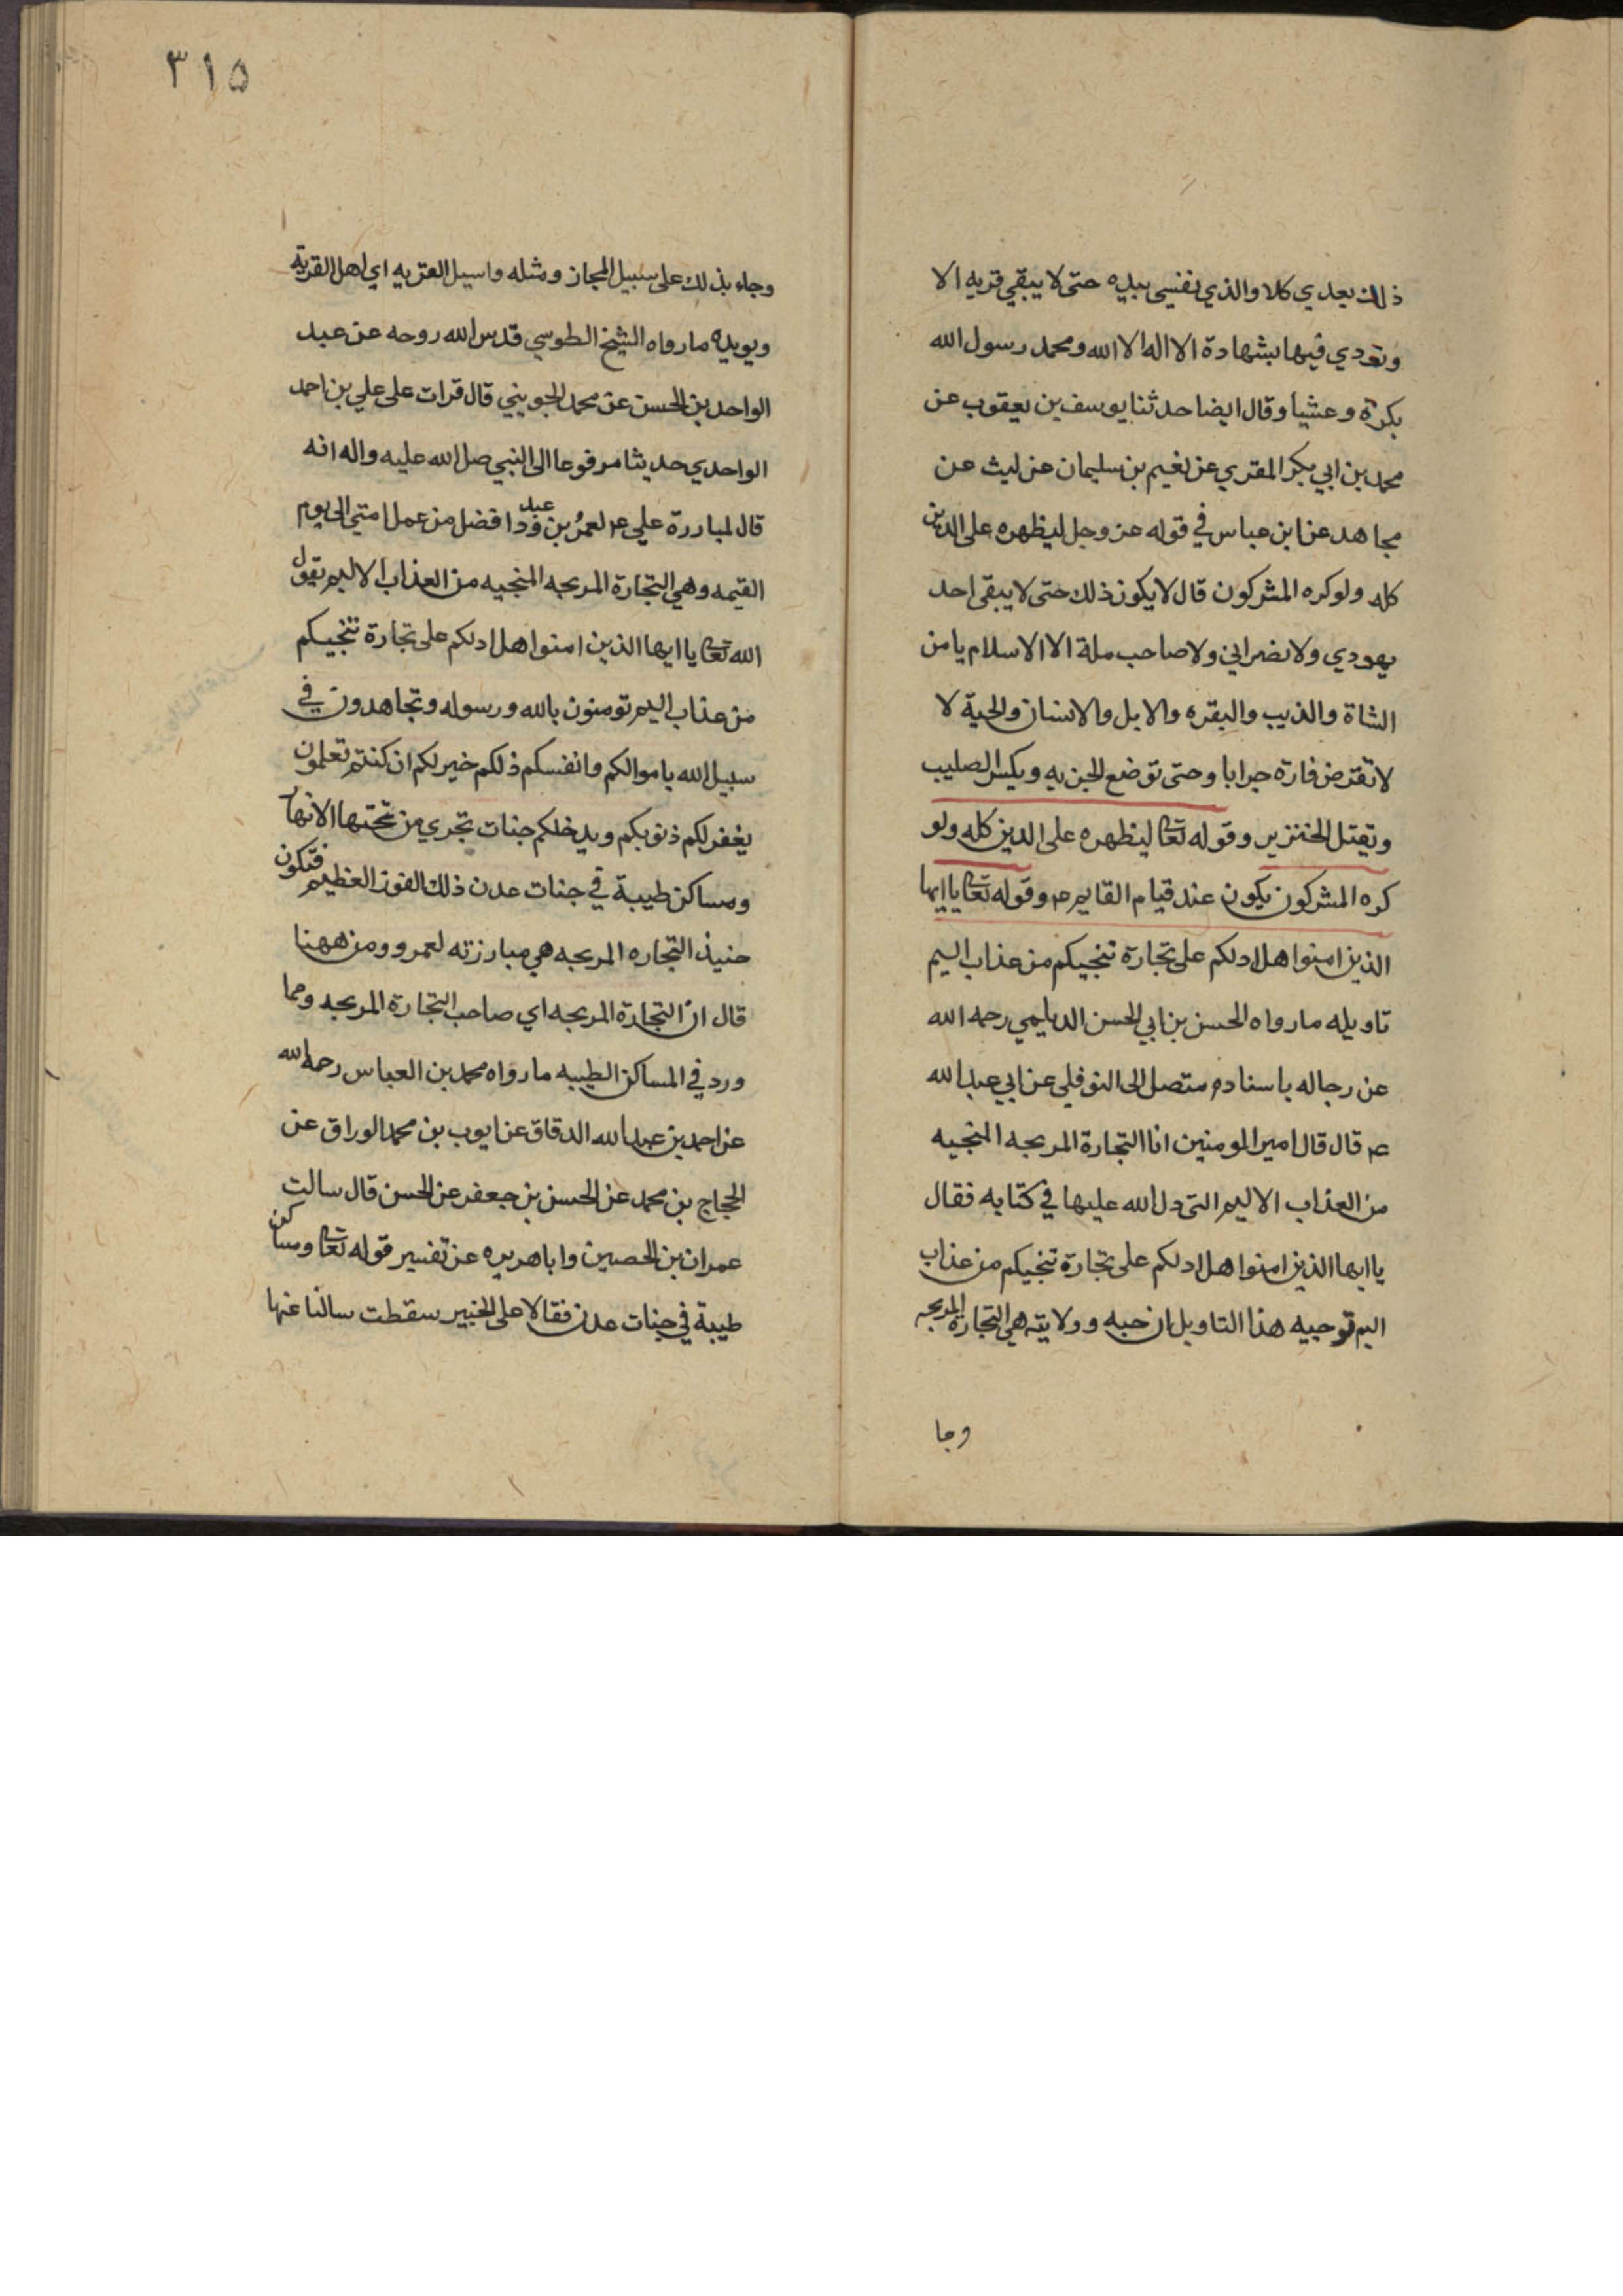 ذلك بعدي كلا والذي نفسي بيده حتى لا يبقي قريه الا
ونودي فيها بشهادة الا اله الا الله ومحمد رسول الله
بكرة وعشيا وقال ايضا حدثنا يوسف بن يعقوب عن
محمد بن ابي بكر المقري عن نعيم بن سليمان عن ليث عن
مجاهد عن ابن عباس في قوله عز وجل ليظهره على الدين
كله ولو كره المشركون قال لا يكون ذلك حتى لا يبقى احد
يهودي ولا نصراني ولا صاحب ملة الا الاسلام يامن
الشاة والذيب والبقره والابل والانسان والحية لا
لا تقرض فارة جرابا وحتى توضع الجزيه ويكسر الصليب
ويقتل الخنزير وقوله تعا ليظهره على الدين كله ولو
كره المشركون يكون عند قيام القايم ع وقوله تعا يا ايها
الذين امنوا هل ادلكم على تجارة تنجيكم من عذاب اليم
تاويله ما رواه الحسن بن ابي الحسن الديلمي رحمه الله
عن رجاله باسناده متصل الى النوفلي عن ابي عبد الله
ع قال قال امير المومنين انا التجارة المربحه المنجيه
من العذاب الاليم التى دل الله عليها في كتابه فقال
يا ايها الذين امنوا هل ادلكم على تجارة تنجيكم من عذاب
اليم توجيه هذا التاويل ان حبه وولايته هي التجارة المربحه
وجا
٣١٥
وجاء بذلك على سبيل المجاز ومثله واسيل القريه اي اهل القرية
ويويده ما رواه الشيخ الطوسي قدس الله روحه عن عبد
الواحد بن الحسن عن محمد الجويني قال قرات على علي بن احمد
الواحدي حديثا مرفوعا الى النبي صل الله عليه واله انه
قال لمباررة علي ع لعمر بن عبد ود افضل من عمل امتي الى يوم
القيمه وهي التجارة المربحه المنجيه من العذاب الاليم يقول
الله تعا يا ايها الذين امنوا هل ادلكم على تجارة تنجيكم
من عذاب اليم تومنون بالله ورسوله وتجاهدون في
سبيل الله باموالكم وانفسكم ذلكم خير لكم ان كنتم تعلمون
يغفر لكم ذنوبكم ويدخلكم جنات تجري من تحتها الانها
ومساكن طيبة في جنات عدن ذلك الفوز العظيم فتكون
حنيذ التجاره المربحه هي مبارزته لعمرو ومن ههنا
قال ان التجارة المربحه اي صاحب التجارة المربحه ومما
ورد في المساكن الطيبه ما رواه محمد بن العباس رحمه الله
عن احمد بن عبد الله الدقاق عن ايوب بن محمد الوراق عن
الحجاج بن محمد عن الحسن بن جعفر عن الحسن قال سالت
عمران بن الحصين وابا هريره عن تفسير قوله تعا ومساكن
طيبة في جنات عدن فقالا على الخبير سقطت سالنا عنها